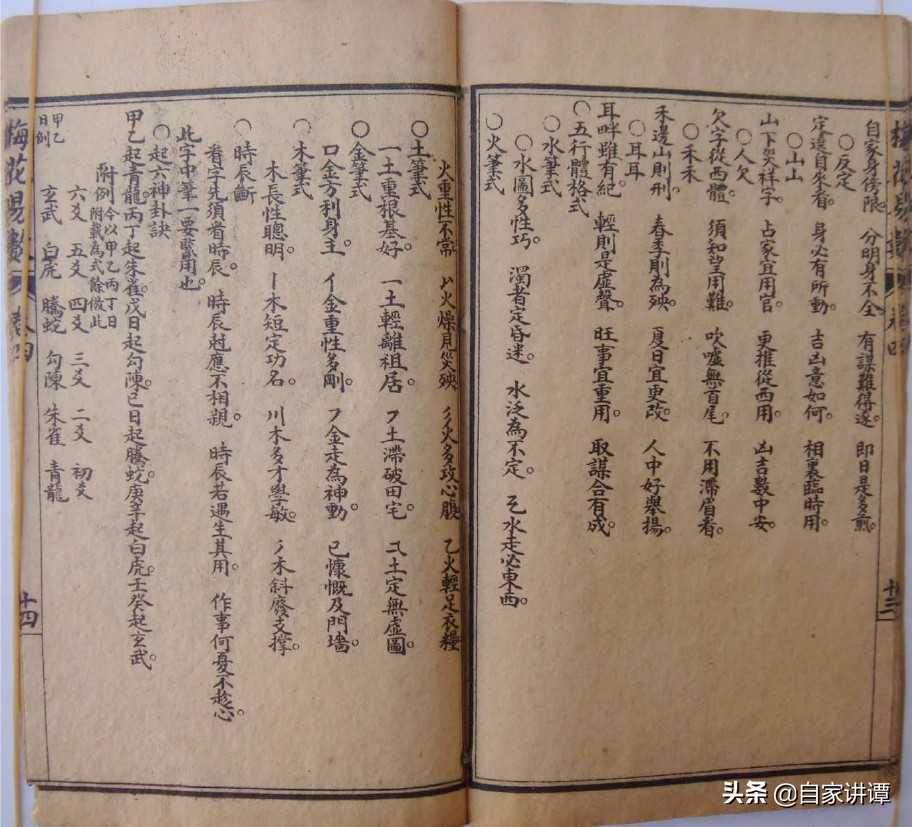 自家身傍限。 分明身不全 有謀難得遂。 即日是多煎。
○反定
定遠自來看。 身必有所動。 吉凶意如何。 相裏臨時用。
○山山
山下哭祥字。 占家宜用官。 更推從西用。 凶吉數中安。
○人欠
欠字從西體。 須知望用難。 吹噓無首尾。 不用滯眉看。
○禾禾
禾邊山則刑。 春季則為殃。 夏日宜更改。 人中好舉揚。
○耳耳
耳畔雖有紀 輕則是虛聲。 旺事宜重用。 取謀合有成。
○五行體格式
○水筆式
○水圓多性巧。 濁者定昏迷。 水泛為不定。 乙水走必東西。
○火筆式
十三
火重性不常 八火燥見哭殃 彡火多攻心腹 乙火輕足衣糧
○土筆式
一土重根基好。 一土輕離祖居。 フ土滯破田宅。 土定無虛圖。
○金筆式
口金方利身主 亻金重性多剛。 フ金走為神動。 已慷慨及門墻
○木筆式
木長性聰明。 丨木短定功名。 川木多才學敏。 丿木斜廢支撐。
時辰斷
看字先須看時辰。 時辰尅應不相親。 時辰若遇生其用。 作事何憂不趁心。
此字中筆一要藏用也。
○起六神卦訣
甲乙起青龍丙丁起朱雀戊日起勾陳巳日起螣蛇庚辛起白虎壬癸起玄武。
附例 今以甲乙丙丁日
附載為式餘倣此
六爻 五爻 四爻 三爻 二爻 初爻
玄武 白虎 螣蛇 勾陳 朱雀 青龍
甲乙
日例
梅花易數
卷四
十四
头条 @自家讲谭